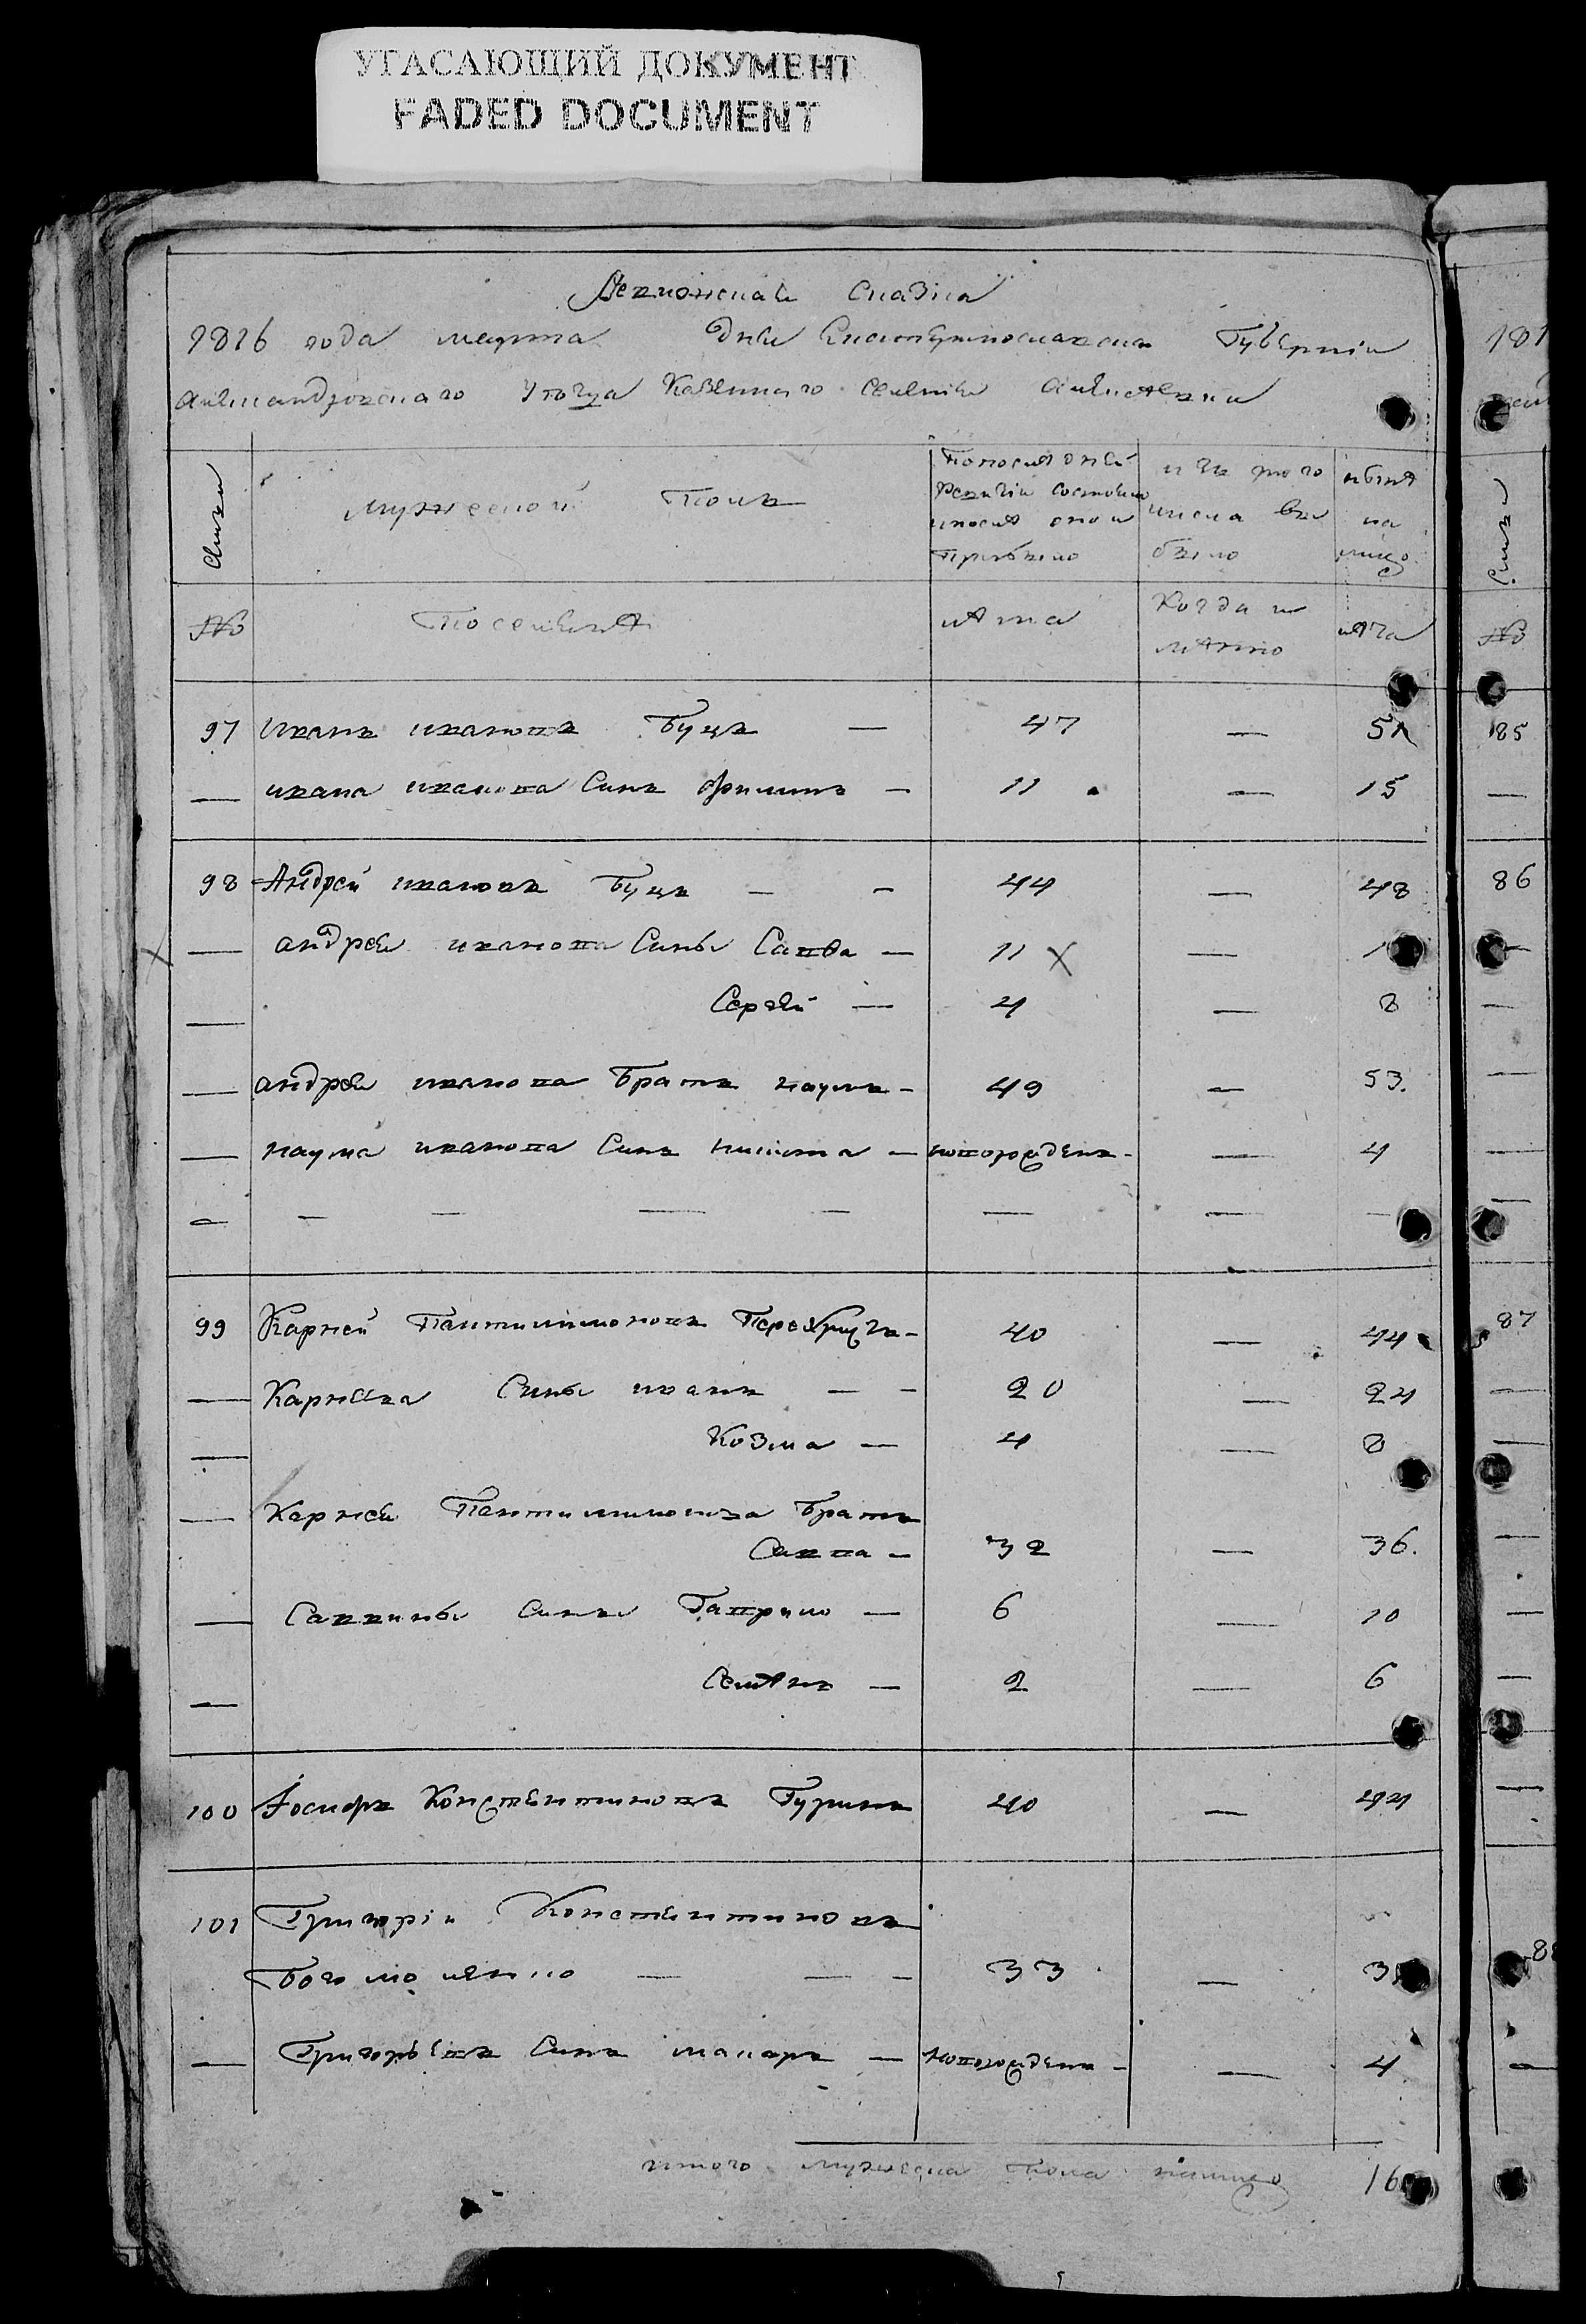 УГАСАЮЩИЙ ДОКУМЕНТ
FADED DOCUMENT
Ревизская Сказка
1816 года марта дня Екатеринославской Губернии
Александровского Уезда Казенного Селения
181
Семьи
мужеской Полъ
По последней Ревизіи состояло и после оной прибыло
изъ того числа выбыло
ныне на лицо
Семьи
№
Поселяня
лета
Когда и
лета
№
97 Иванъ ивановъ Буцъ — 47 — 51 85
— ивана иванова Синъ Филипъ — 11 — 15 —
98 Андрей ивановъ Буцъ — — 44 — 48 86
— андрея иванова Сины Савва — 11 X — 1
— Сергей — 4 — 8 —
— андрея иванова Братъ наумъ — 49 — 53. —
— наума иванова Синъ никита — новорожденъ — — 4 —
99 Карней Пантилимоновъ — 40 — 44 87
— Карнеева Сины иванъ — — 20 — 24 —
— Козма — 4 — 8 —
— Карнея Пантилимонова Братъ
Савва — 32 — 36. —
— Саввины Сины Гаврило — 6 — 10 —
— Семенъ — 2 — 6 —
100 Іосифъ Константиновъ Гуринъ 40 — 44 —
101 Григоріи Константиновъ
Богомо — — — 33 — 3
— Григорьевъ Синъ макаръ — новорожденъ — — 4 —
итого мужеска Пола налицо 16